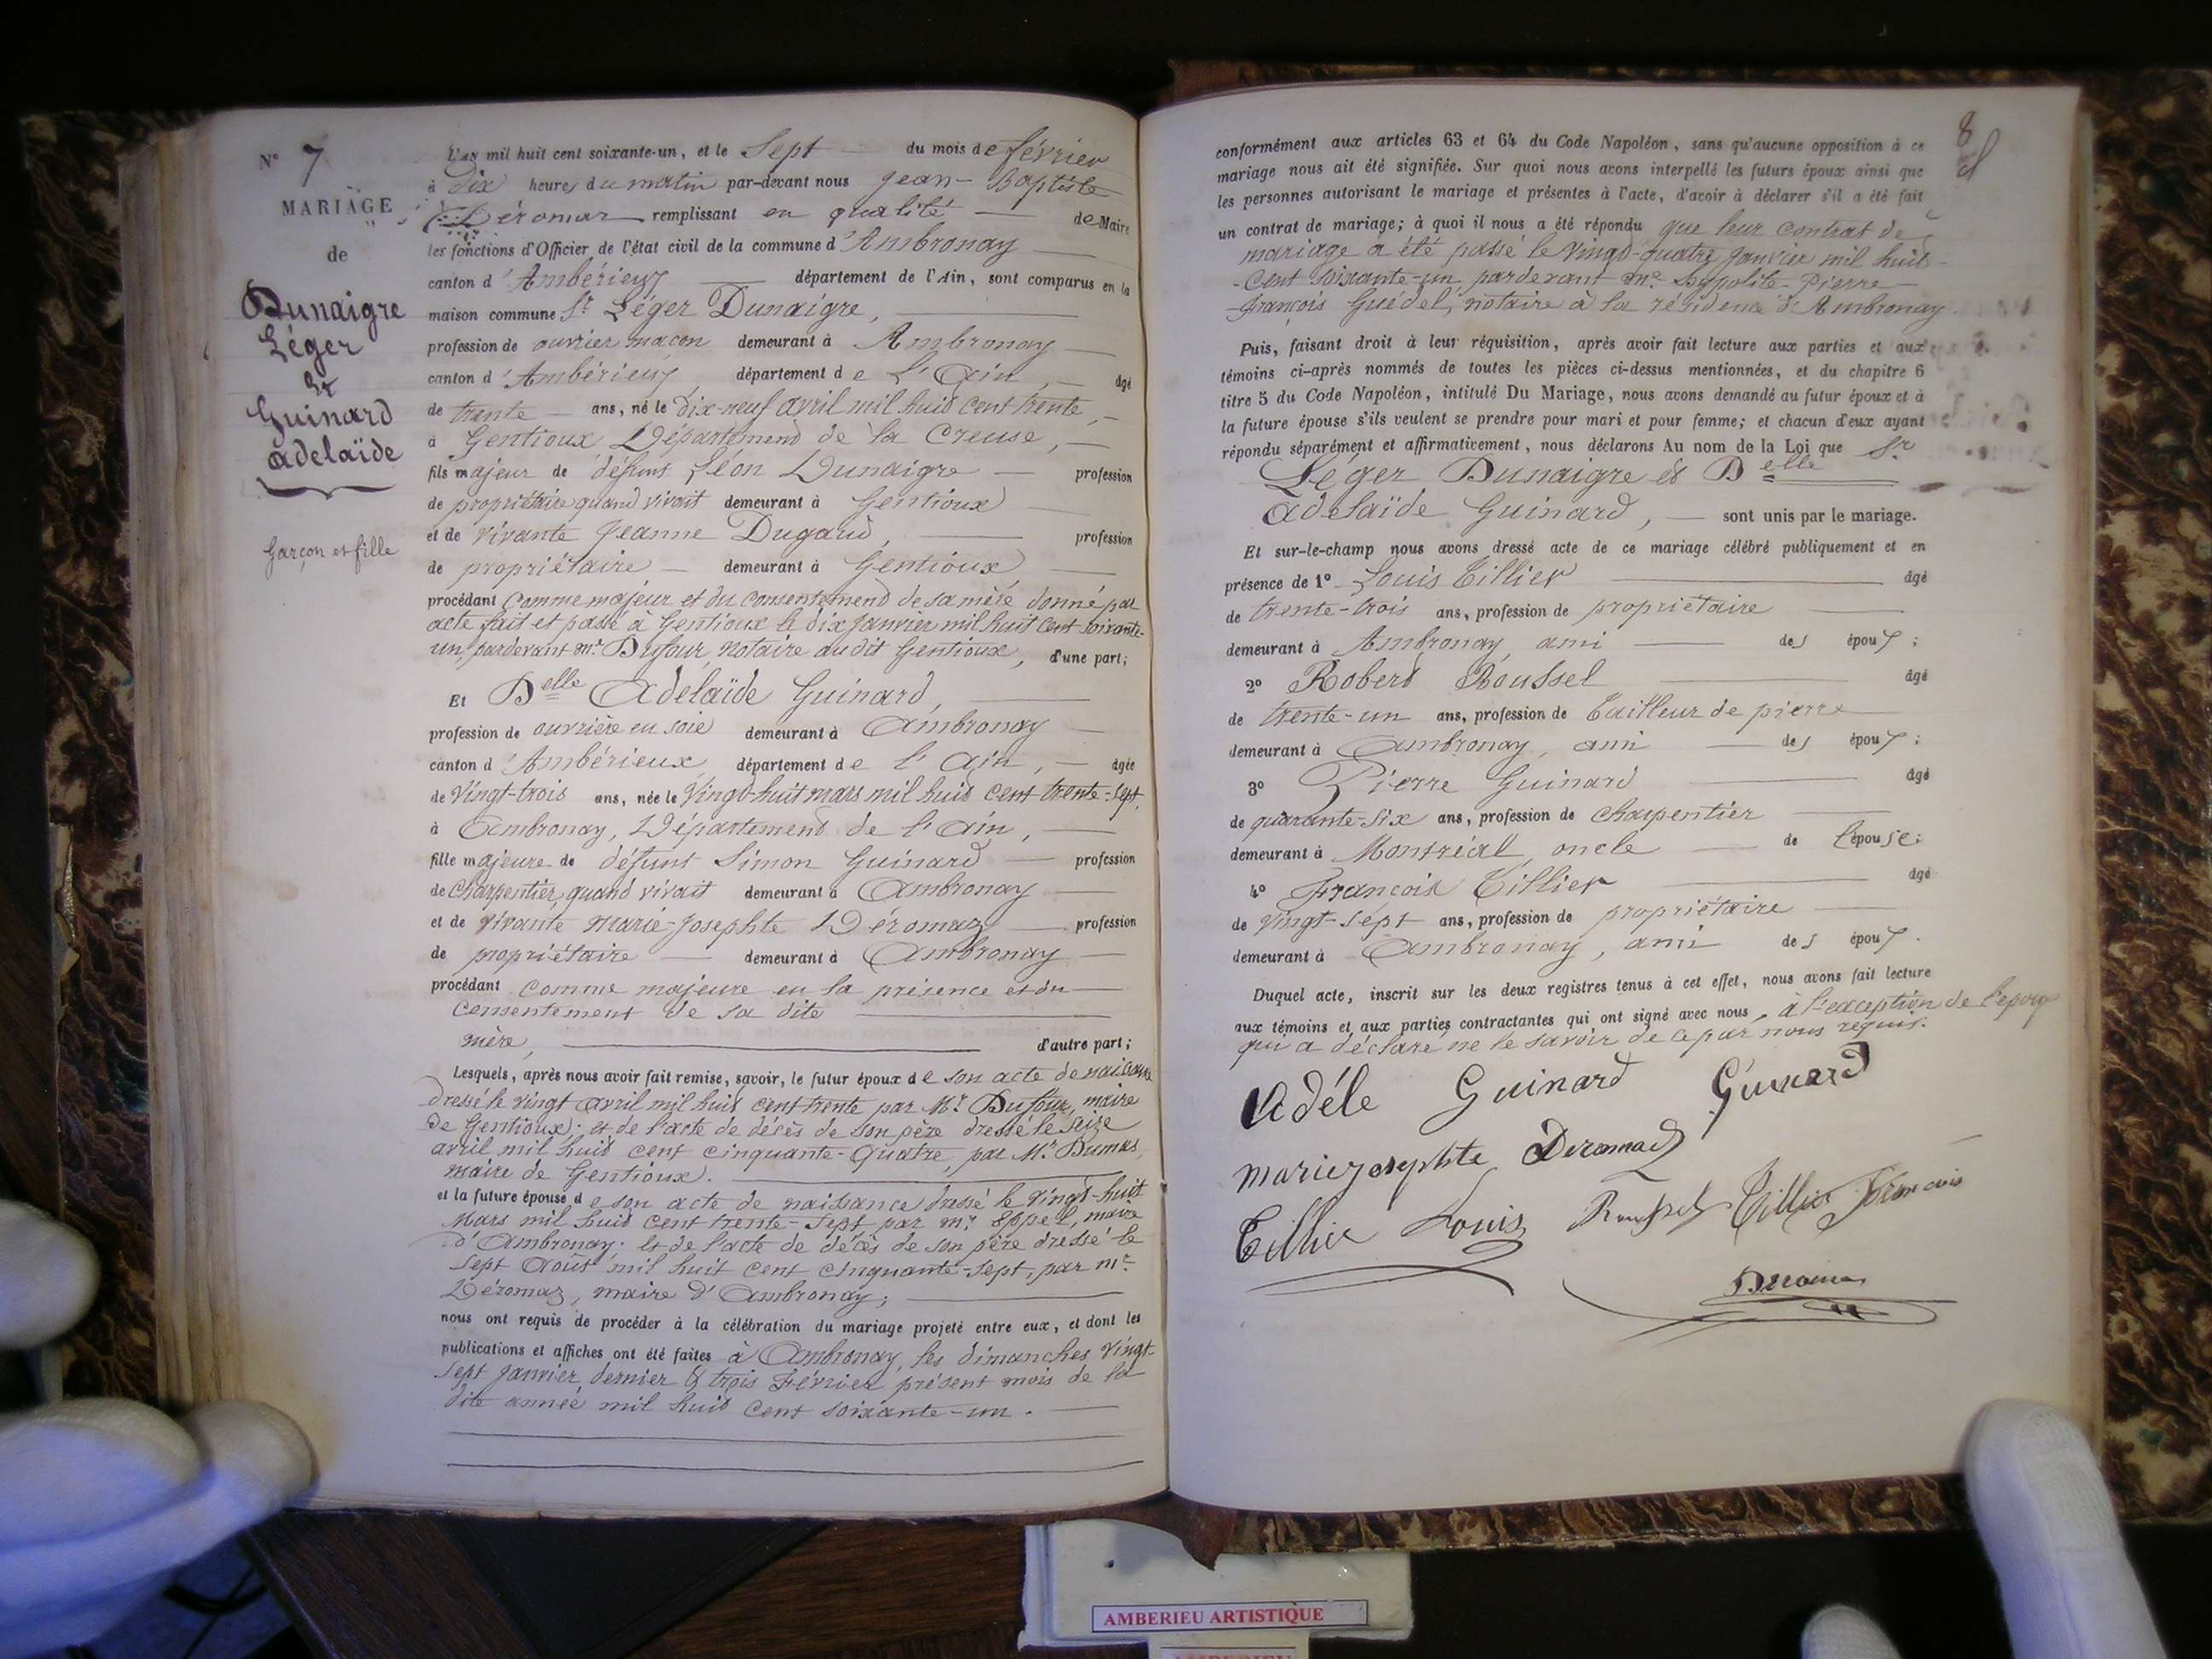 N° 7
MARIAGE
de
Dunaigre
Léger
&
Guinard
Adelaïde
Garçon et fille
L'an mil huit cent soixante-un, et le Sept du mois de février
à Dix heures du matin par-devant nous Jean-Baptiste
Déromas remplissant en qualité de Maire
les fonctions d'Officier de l'état civil de la commune d'Ambronay
canton d'Ambérieux département de l'Ain, sont comparus en la
maison commune Sr Léger Dunaigre,
profession de ouvrier maçon demeurant à Ambronay
canton d'Ambérieux, département de L'Ain, âgé
de trente ans, né le Dix-neuf avril mil huit cent trente,
à Gentioux Département de la Creuse,
fils majeur de défunt Léon Dunaigre profession
de propriétaire quand vivait demeurant à Gentioux
et de vivante Jeanne Dugard, profession
de propriétaire demeurant à Gentioux
procédant Comme majeur et du consentement de sa mère donné par
acte fait et passé à Gentioux le dix janvier mil huit cent soixante-
un, pardevant Mr Dufour, notaire au dit Gentioux, d'une part;
Et Delle Adelaïde Guinard,
profession de ouvrière en soie demeurant à Ambronay
canton d'Ambérieux, département de l'Ain, âgée
de Vingt-trois ans, née le Vingt-huit mars mil huit cent trente-sept,
à Ambronay, Département de l'Ain,
fille majeure de défunt Simon Guinard profession
de Charpentier, quand vivait demeurant à Ambronay
et de vivante Marie-Josephte Déromaz profession
de propriétaire demeurant à Ambronay
procédant comme majeure en la présence et du
consentement de sa dite
mère, d'autre part;
Lesquels, après nous avoir fait remise, savoir, le futur époux de son acte de naissance
dressé le vingt avril mil huit cent trente par Mr Dufour, maire
de Gentioux; et de l'acte de décès de son père dressé le seize
avril mil huit cent cinquante-quatre, par Mr Dumas,
maire de Gentioux.
et la future épouse de son acte de naissance dressé le vingt-huit
Mars mil huit cent trente-sept par mr Eppel, maire
d'Ambronay; et de l'acte de décès de son père dressé le
sept Août mil huit cent cinquante-sept, par mr
Déromaz, maire d'Ambronay;
nous ont requis de procéder à la célébration du mariage projeté entre eux, et dont les
publications et affiches ont été faites à Ambronay, les dimanches vingt-
sept janvier dernier & trois Février présent mois de la
dite année mil huit cent soixante-un.
8
conformément aux articles 63 et 64 du Code Napoléon, sans qu'aucune opposition à ce
mariage nous ait été signifiée. Sur quoi nous avons interpellé les futurs époux ainsi que
les personnes autorisant le mariage et présentes à l'acte, d'avoir à déclarer s'il a été fait
un contrat de mariage; à quoi il nous a été répondu que leur contrat de
mariage a été passé le Vingt-quatre janvier mil huit-
cent soixante-un, pardevant Me Hyppolite-Pierre-
François Guédel, notaire à la résidence d'Ambronay
Puis, faisant droit à leur réquisition, après avoir fait lecture aux parties et aux
témoins ci-après nommés de toutes les pièces ci-dessus mentionnées, et du chapitre 6
titre 5 du Code Napoléon, intitulé Du Mariage, nous avons demandé au futur époux et à
la future épouse s'ils veulent se prendre pour mari et pour femme; et chacun d'eux ayant
répondu séparément et affirmativement, nous déclarons Au nom de la Loi que Sr
Léger Dunaigre et Delle
Adelaïde Guinard, sont unis par le mariage.
Et sur-le-champ nous avons dressé acte de ce mariage célébré publiquement et en
présence de 1° Louis Tillier âgé
de trente-trois ans, profession de propriétaire
demeurant à Ambronay, ami des époux;
2° Robert Roussel âgé
de trente-un ans, profession de Tailleur de pierre
demeurant à Ambronay, ami des époux;
3° Pierre Guinard âgé
de quarante-six ans, profession de Charpentier
demeurant à Montréal, oncle de l'épouse;
4° François Tillier âgé
de vingt-sept ans, profession de propriétaire
demeurant à Ambronay, ami des époux.
Duquel acte, inscrit sur les deux registres tenus à cet effet, nous avons fait lecture
aux témoins et aux parties contractantes qui ont signé avec nous, à l'exception de l'époux
qui a déclaré ne le savoir de ce par nous requis.
Adéle Guinard Guinard
marie josephte Deromaz
Tillier Louis Roussel Tillier François
Deromas
AMBERIEU ARTISTIQUE
AMBERIEU